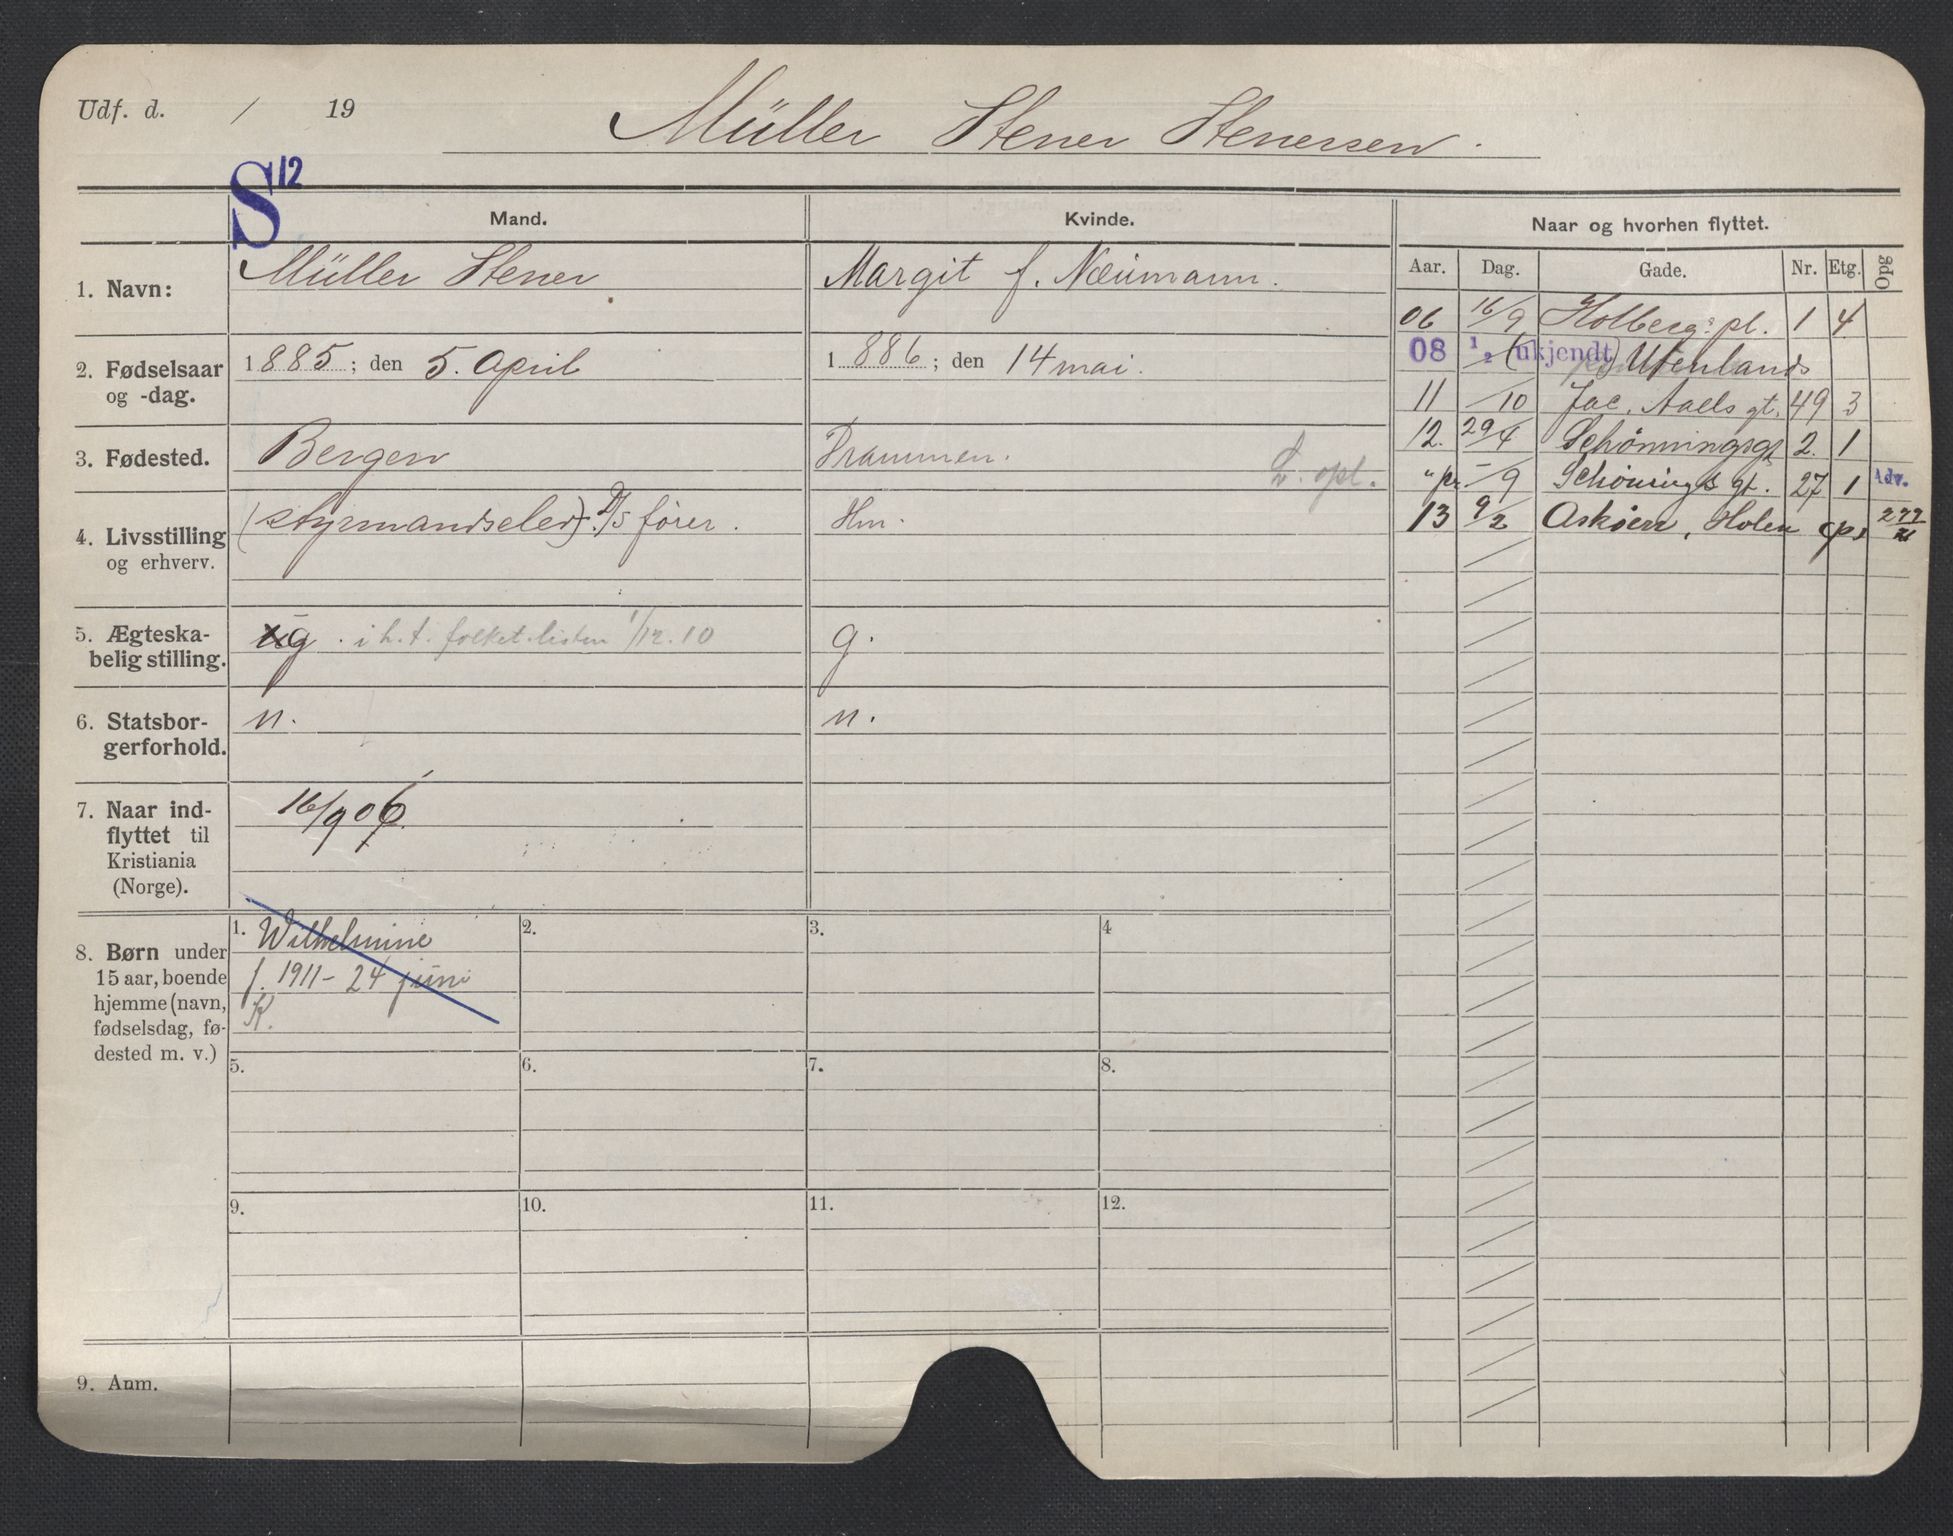 Udf. d. / 19
Müller Stener Stenersen.
S 12
Mand.
Kvinde.
Naar og hvorhen flyttet.
Aar. Dag. Gade. Nr. Etg. Opg
1. Navn:
Müller Stener
Margit f. Neümann.
2. Fødselsaar
og -dag.
1885; den 5. April
1886; den 14 mai.
3. Fødested.
Bergen
Drammen.
L. opl.
4. Livsstilling
og erhverv.
(styrmandselev) D/S fører.
Hm.
5. Ægteska-
belig stilling.
g. i h.t. folket.listen 1/12.10
g.
6. Statsbor-
gerforhold.
n.
n.
7. Naar ind-
flyttet til
Kristiania
(Norge).
16/9 06
8. Børn under
15 aar, boende
hjemme (navn,
fødselsdag, fø-
dested m. v.)
1. Wilhelmine
f. 1911 - 24 juni
K.
2.
3.
4
5.
6.
7.
8.
9.
10.
11.
12.
9. Anm.
06 16/9 Holbergs pl. 1 4
08 1/2 (ukjendt) Utenlands
11 /10 Jac. Aalls gt. 49 3
12. 29/4 Schønningsgt 2. 1
" pr - /9 Schönings gt. 27 1 Adv.
13 9/2 Asköen, Holen